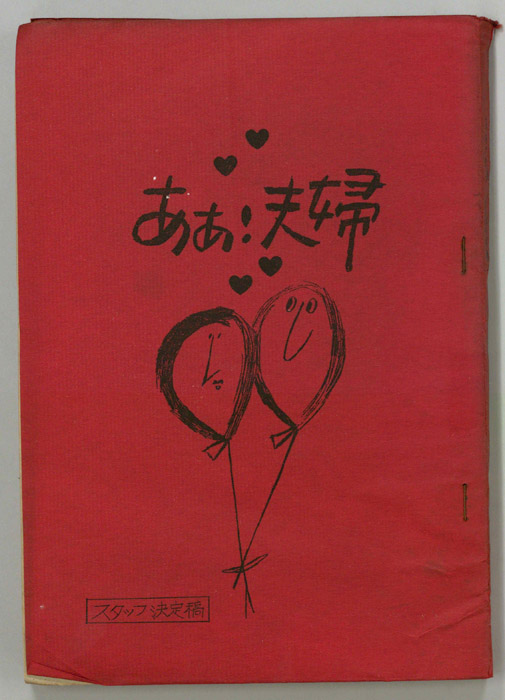 ああ!夫婦
スタッフ決定稿